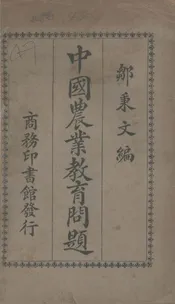 鄒秉文編
中國農業教育問題
商務印書館發行